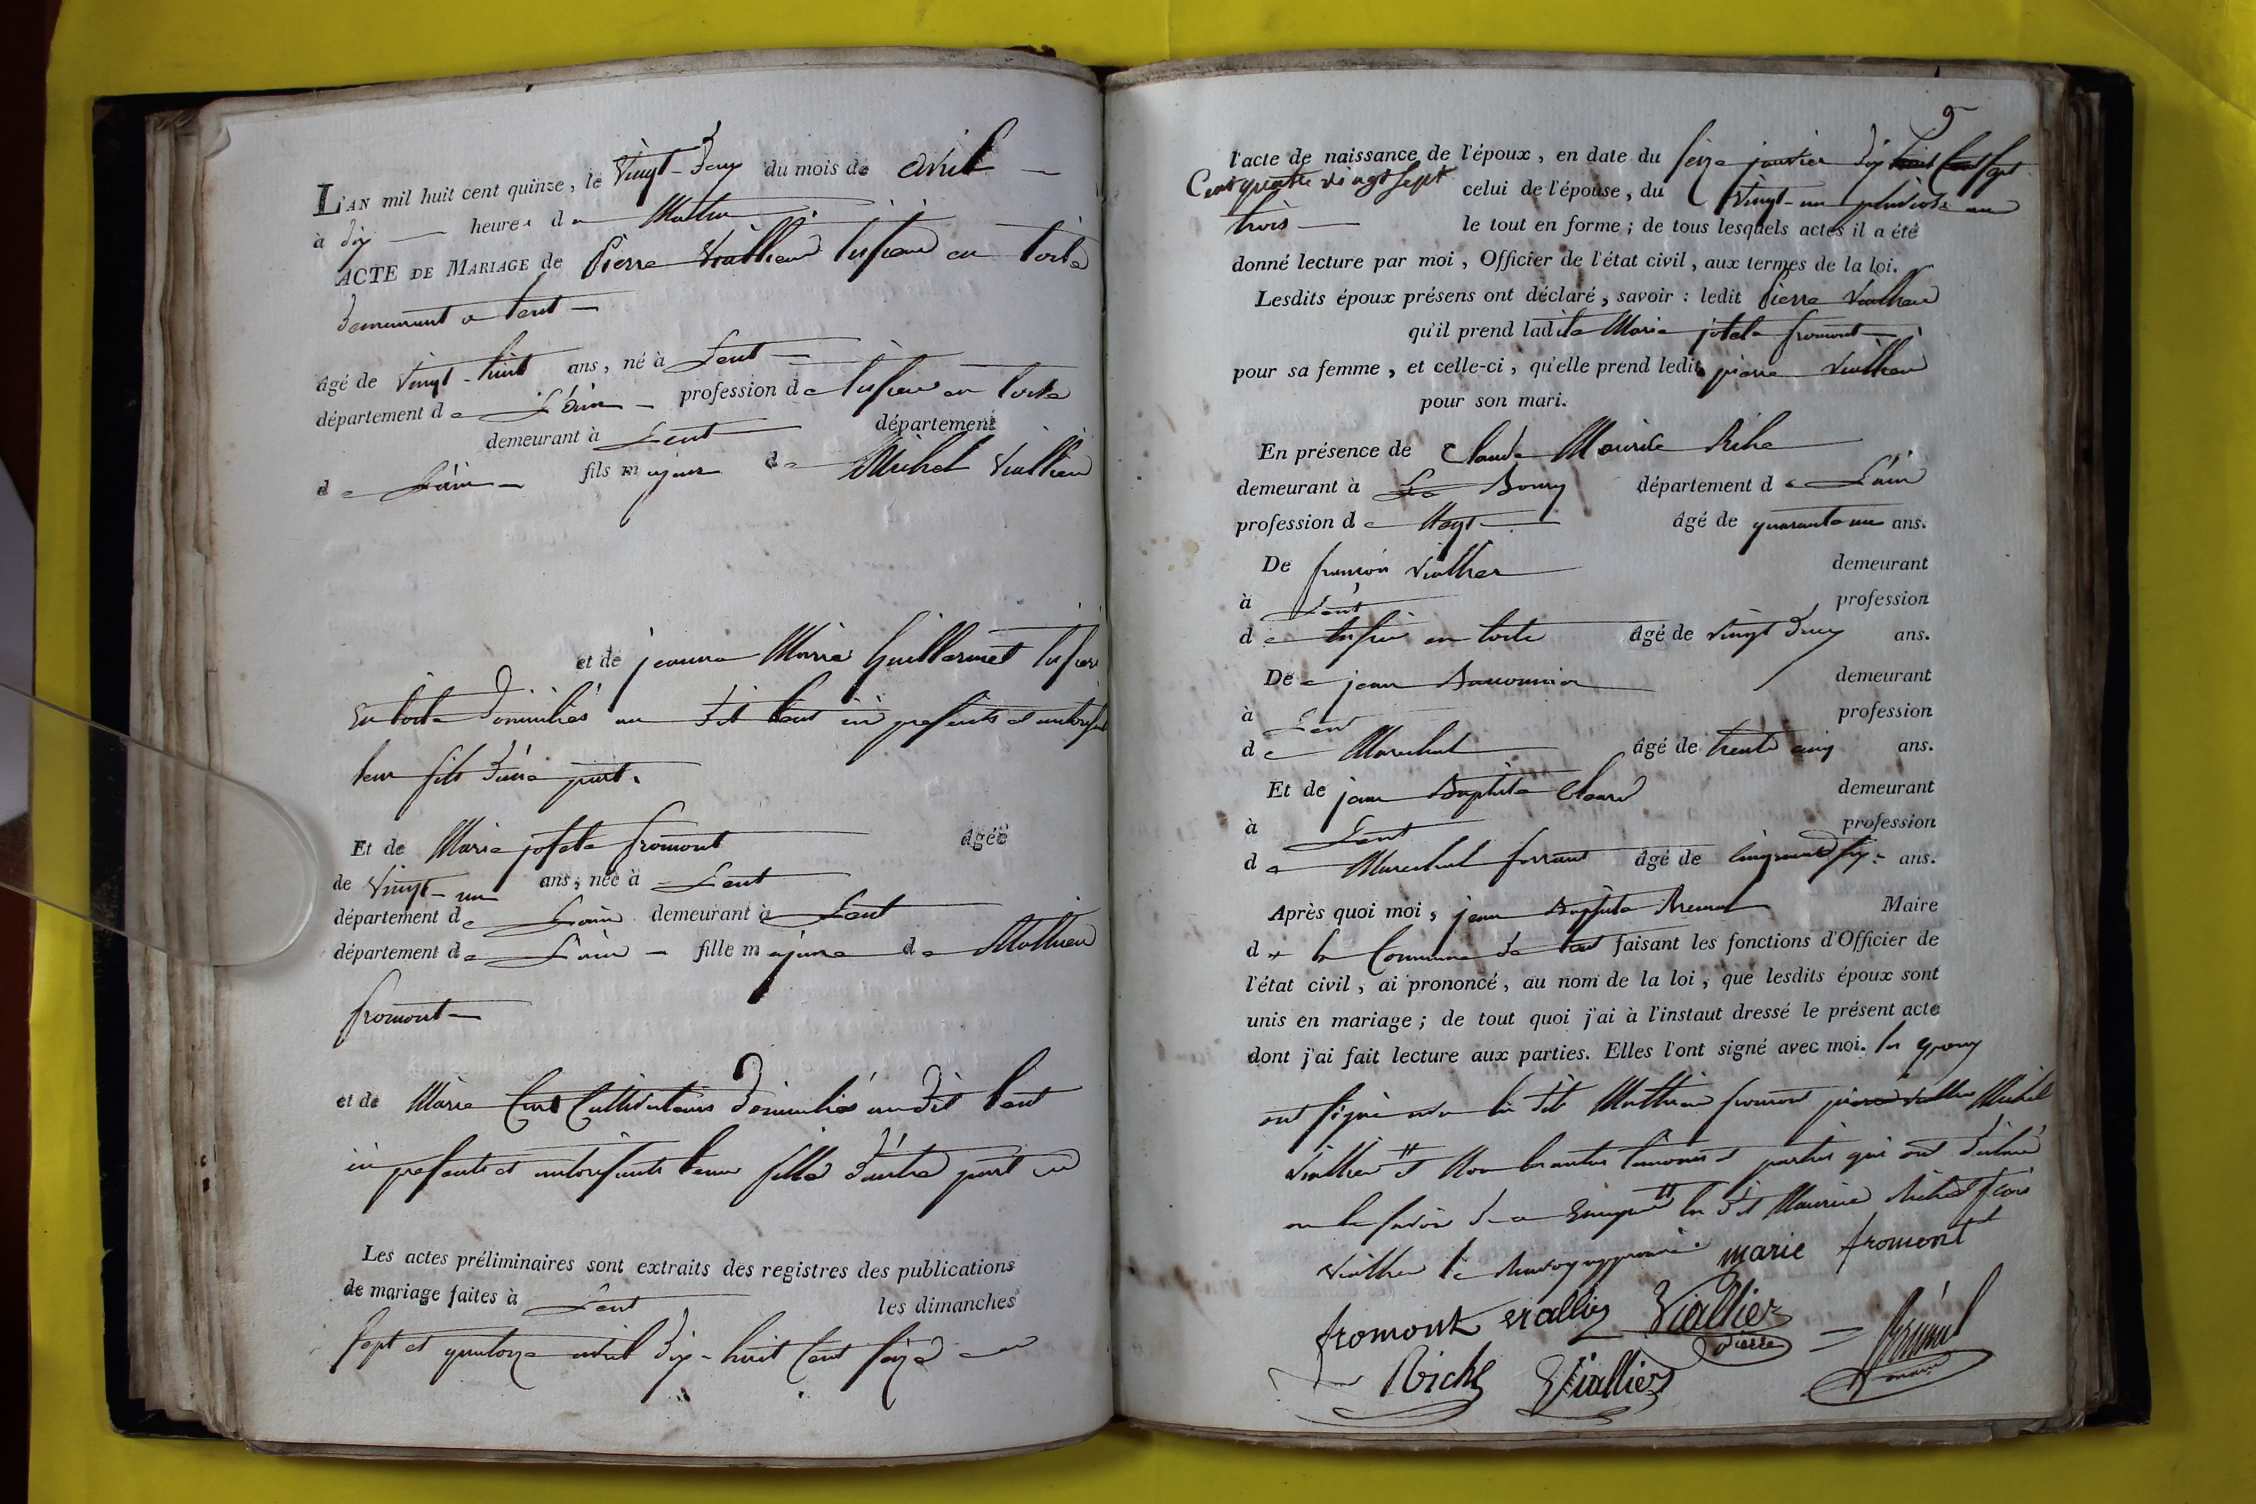 L'AN mil huit cent quinze, le vingt-deux du mois de avril
à dix heures de Matin
ACTE DE MARIAGE de Pierre Viallier tissier en toile
demeurant a Lent
âgé de vingt-huit ans, né à Lent
département de L'ain profession de tissier en toile
demeurant à Lent département
de L'ain fils majeur de Michel Viallier
et de jeanne Marie Guillermet tissier
en toile domiciliés au dit Lent ici presents et autorisant
leur fils d'une part.
Et de Marie josete fromont âgée
de vingt-un ans, née à Lent
département de L'ain demeurant à Lent
département de L'ain fille majeure de Mathieu
fromont
et de Marie Cultivateurs domiciliés audit Lent
ici presents et autorisants leur fille d'autre part
Les actes préliminaires sont extraits des registres des publications
de mariage faites à Lent les dimanches
sept et quatorze avril dix-huit Cent seize
9
l'acte de naissance de l'époux, en date du seize janvier dix sept
Cent quatre vingt sept celui de l'épouse, du vingt-un pluviose an
trois le tout en forme; de tous lesquels actes il a été
donné lecture par moi, Officier de l'état civil, aux termes de la loi.
Lesdits époux présens ont déclaré, savoir : ledit Pierre Viallier
qu'il prend ladite Marie josete fromont
pour sa femme, et celle-ci, qu'elle prend ledit pierre Viallier
pour son mari.
En présence de Claude Maurice Riche
demeurant à Bourg département de L'ain
profession de âgé de quarante un ans.
De françois Viallier demeurant
à Lent profession
de tissier en toile âgé de vingt deux ans.
De jean demeurant
à Lent profession
de Marechal âgé de trente cinq ans.
Et de jean Baptiste demeurant
à Lent profession
de Marechal ferrant âgé de cinquante six ans.
Après quoi moi, jean Baptiste Brunel Maire
de la Commune de Lent faisant les fonctions d'Officier de
l'état civil, ai prononcé, au nom de la loi, que lesdits époux sont
unis en mariage; de tout quoi j'ai à l'instaut dressé le présent acte
dont j'ai fait lecture aux parties. Elles l'ont signé avec moi. les epoux
ont signé Mathieu fromont pierre viallier Michel
viallier et Non les autres temoins et parties qui ont declaré
ne le savoir de ce enquis le dit Maurice Riche et
viallier marie fromont
fromont viallier Viallier pierre Brunel
Riche Viallier maire